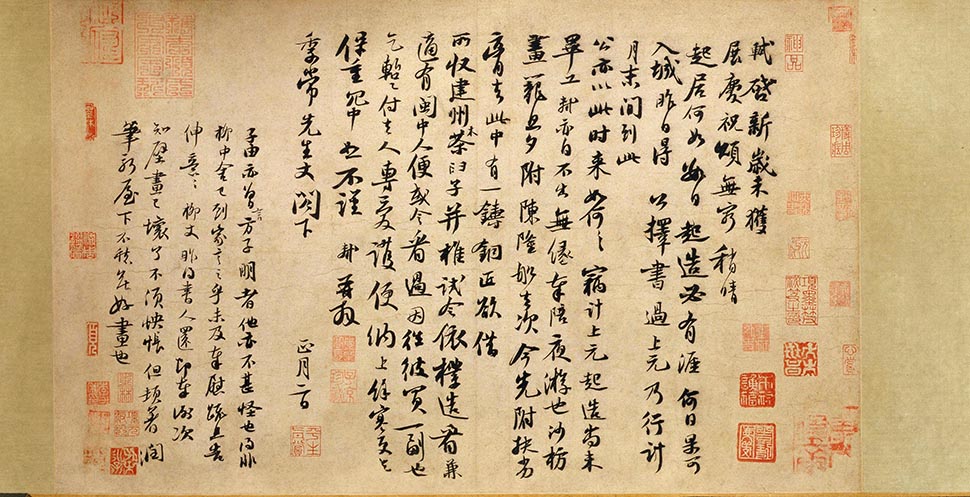 軾啓新歲未獲
展慶祝頌無窮稍晴
起居何如數日起造必有涯何日果可
入城昨日得公擇書過上元乃行計
月末間到此
公亦以此時來如何〻竊計上元起造尚未
畢工軾亦自不出無緣奉陪夜遊也沙枋
畫籠旦夕附陳隆船去次今先附扶劣
膏去此中有一鑄銅匠欲借
所收建州木茶臼子并椎試令依樣造看兼
適有閩中人便或令看過因往彼買一副也
乞暫付去人專愛護便納上餘寒更乞
保重冗中恕不謹軾再拜
季常先生丈閤下 正月二日
子由亦曾言方子明者他亦不甚怪也得非
柳中舍已到家言之乎未及奉慰疏且告
伸意〻柳丈昨得書人還即奉謝次
知壁畫已壞了不須怏悵但頓著潤
筆新屋下不愁無好畫也